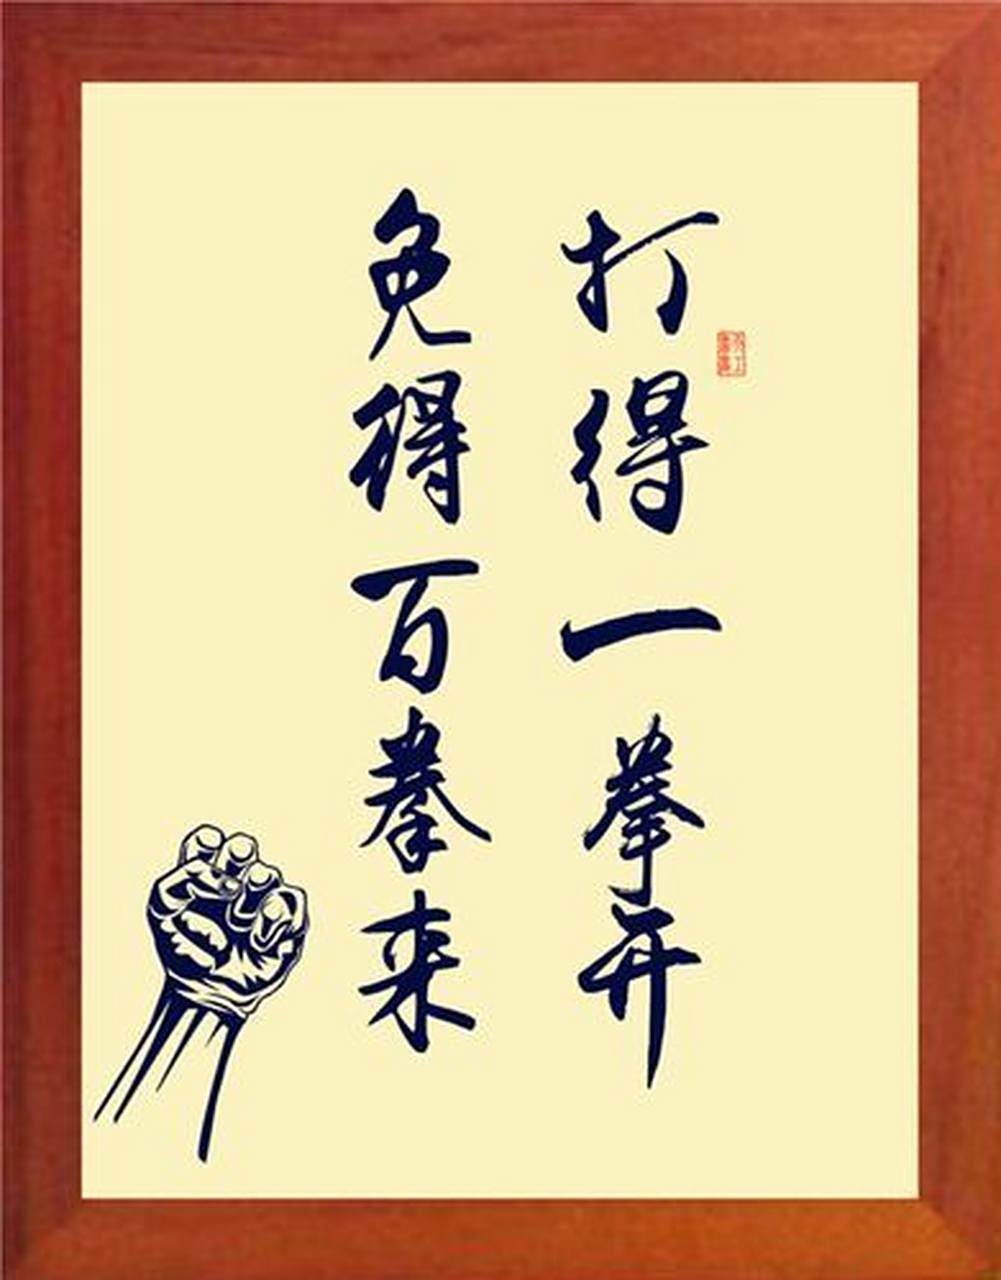 打得一拳开
免得百拳来